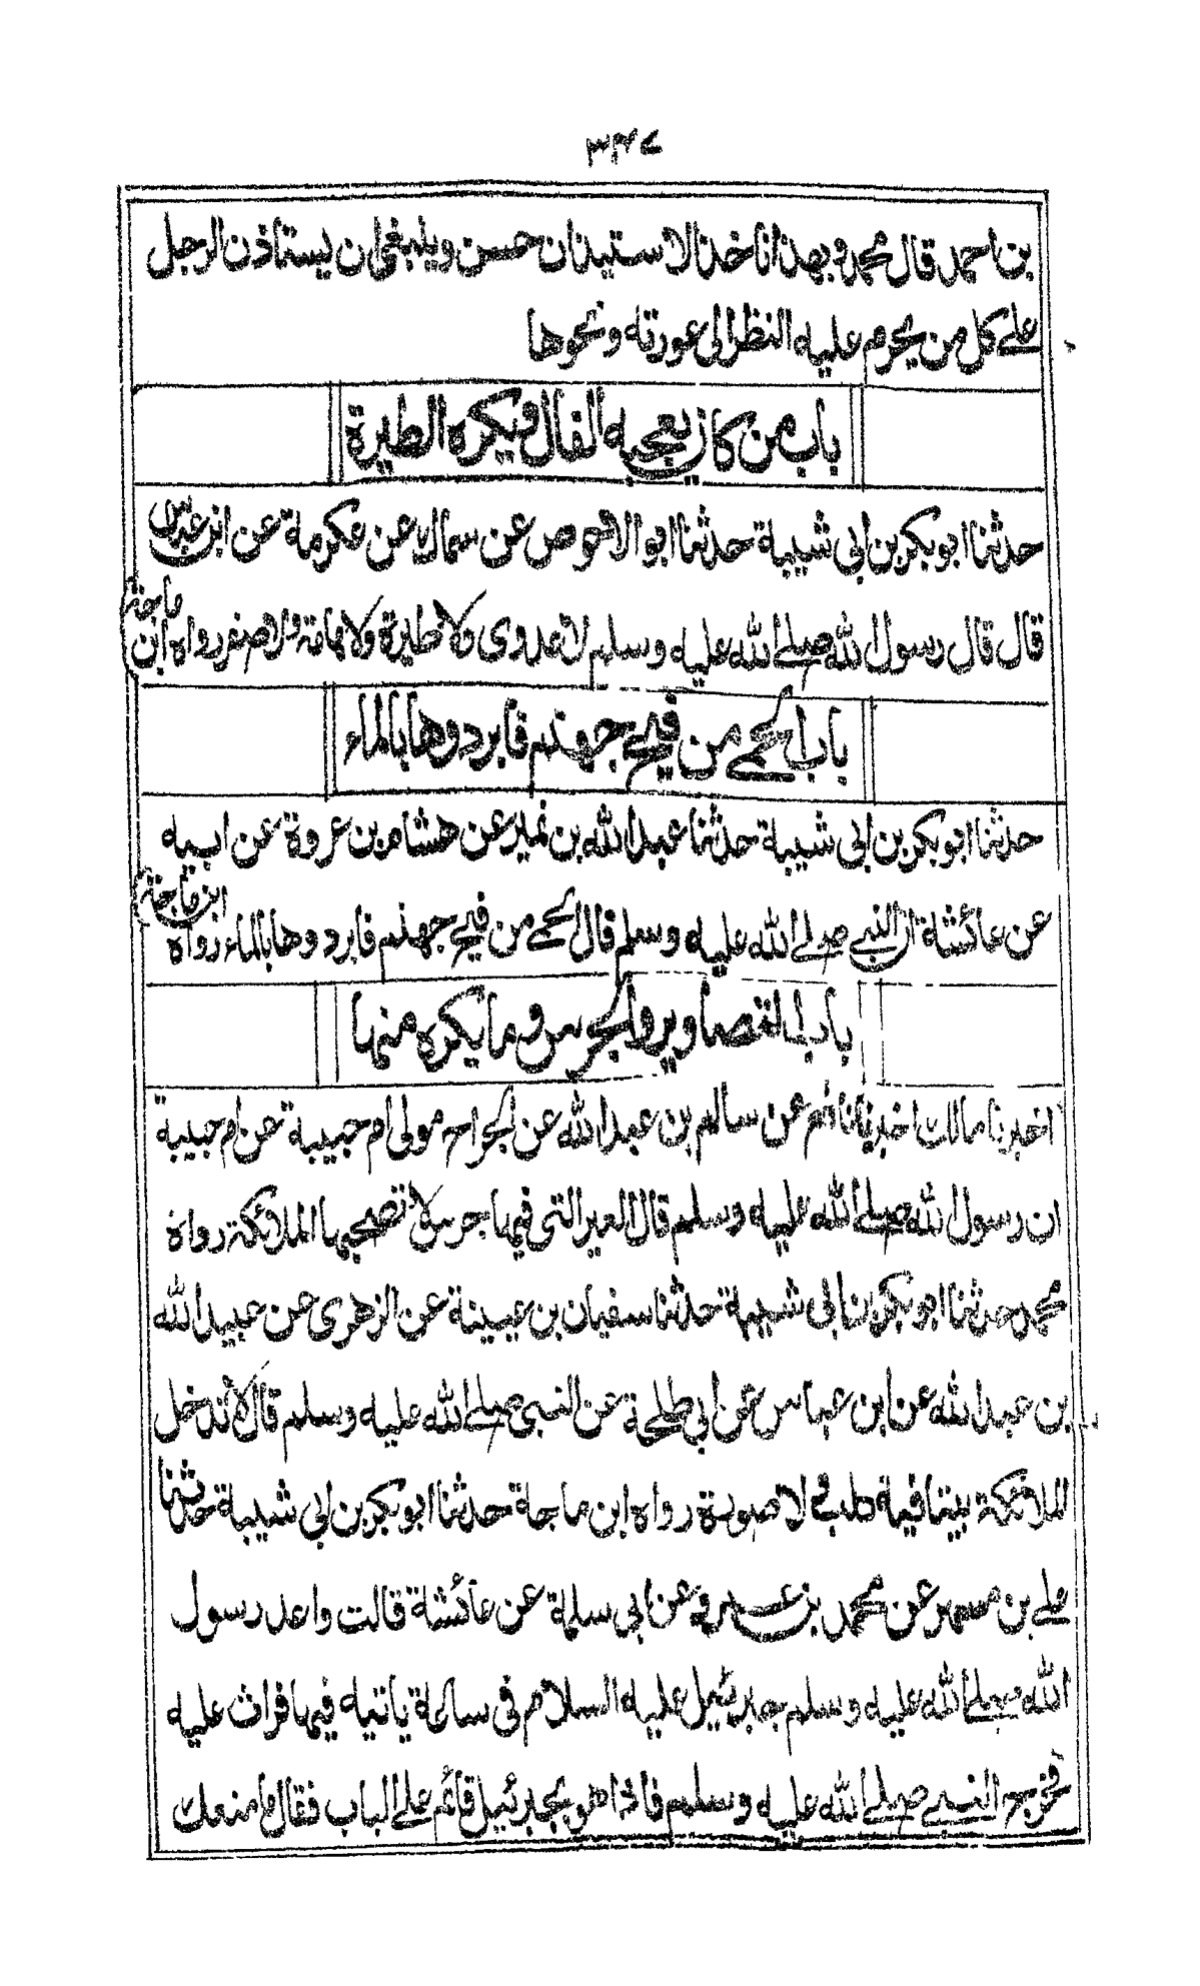 ٣٤٧
بن احمد قال محمد وبهذا ناخذ الاستيذان حسن وينبغي ان يستاذن الرجل
على كل من يحرم عليه النظر الى عورته ونحوها
باب من كان يعجبه الفال ويكره الطيرة
حدثنا ابو بكر بن ابي شيبة حدثنا ابو الاحوص عن سماك عن عكرمة عن ابن عباس
قال قال رسول الله صلى الله عليه وسلم لا عدوى ولا طيرة ولا هامة ولا صفر رواه ابن ماجة
باب الحمى من فيح جهنم فابردوها بالماء
حدثنا ابو بكر بن ابي شيبة حدثنا عبد الله بن نمير عن هشام بن عروة عن ابيه
عن عائشة ان النبي صلى الله عليه وسلم قال الحمى من فيح جهنم فابردوها بالماء رواه ابن ماجة
باب التصاوير والجرس وما يكره منها
اخبرنا مالك اخبرنا نافع عن سالم بن عبد الله عن الجراح مولى ام حبيبة عن ام حبيبة
ان رسول الله صلى الله عليه وسلم قال العير التي فيها جرس لا تصحبها الملائكة رواه
محمد حدثنا ابو بكر بن ابي شيبة حدثنا سفيان بن عيينة عن الزهرى عن عبيد الله
بن عبد الله عن ابن عباس عن ابي طلحة عن النبي صلى الله عليه وسلم قال لا تدخل
الملائكة بيتا فيه كلب ولا صورة رواه ابن ماجة حدثنا ابو بكر بن ابي شيبة حدثنا
على بن مسهر عن محمد بن عمرو عن ابي سلمة عن عائشة قالت واعد رسول
الله صلى الله عليه وسلم جبرئيل عليه السلام في ساعة ياتيه فيها فراث عليه
فخرج النبي صلى الله عليه وسلم فاذا هو بجبرئيل قائم على الباب فقال ما منعك